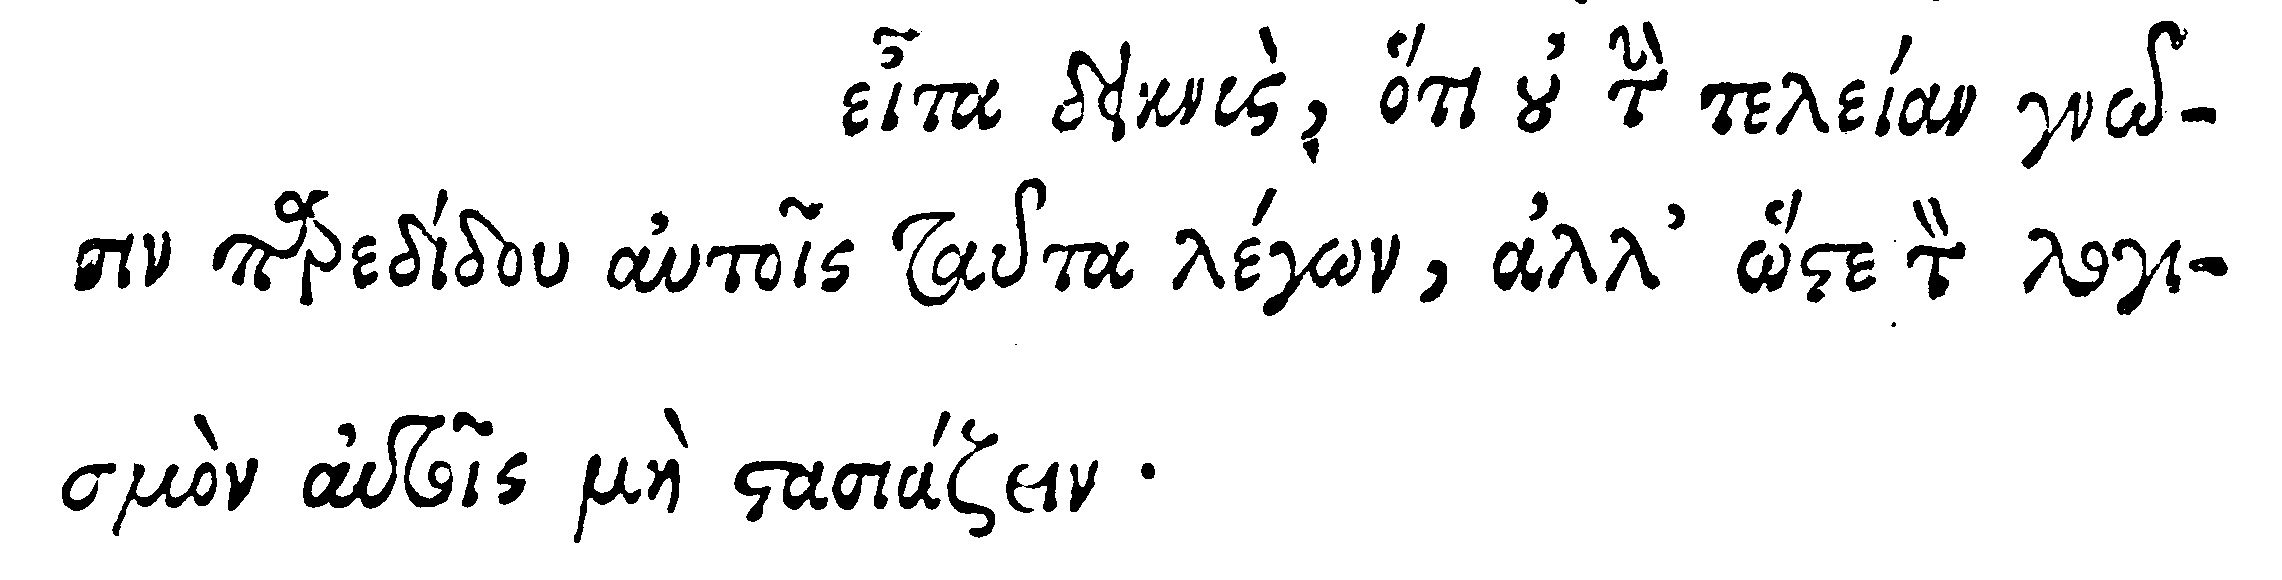 εἶτα δεικνὺς, ὅτι οὐ τὴν τελείαν γνῶ-
σιν παρεδίδου αὐτοῖς ταῦτα λέγων, ἀλλ' ὥστε τὸν λογι-
σμὸν αὐτοῖς μὴ στασιάζειν.